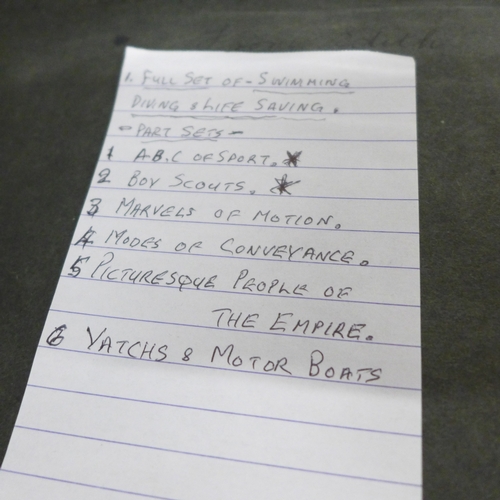 1. FULL SET OF - SWIMMING
DIVING & LIFE SAVING.
- PART SETS -
1 A.B.C OF SPORT. *
2 BOY SCOUTS. *
3 MARVELS OF MOTION.
4 MODES OF CONVEYANCE.
5 PICTURESQUE PEOPLE OF
THE EMPIRE.
6 YATCHS & MOTOR BOATS